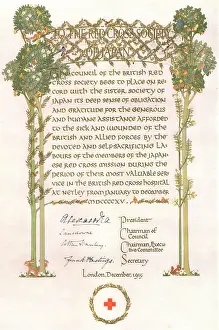 TO THE RED CROSS SOCIETY
OF JAPAN
COUNCIL OF THE BRITISH RED
CROSS SOCIETY BEGS TO PLACE ON RE-
CORD WITH THE SISTER SOCIETY OF
JAPAN ITS DEEP SENSE OF OBLIGATION
AND GRATITUDE FOR THE GENEROUS
AND HUMANE ASSISTANCE AFFORDED
TO THE SICK AND WOUNDED OF THE
BRITISH AND ALLIED FORCES BY THE
DEVOTED AND SELF-SACRIFICING LA-
BOURS OF THE MEMBERS OF THE JAPAN
RED CROSS MISSION DURING THE
PERIOD OF THEIR MOST VALUABLE SER-
VICE IN THE BRITISH RED CROSS HOSPITAL
AT NETLEY FROM JANUARY TO DECEMBER
MDCCCCXV.
Alexandra President
Lansdowne Chairman of
Council
Chairman, Execu-
tive Committee
Secretary
London, December, 1915